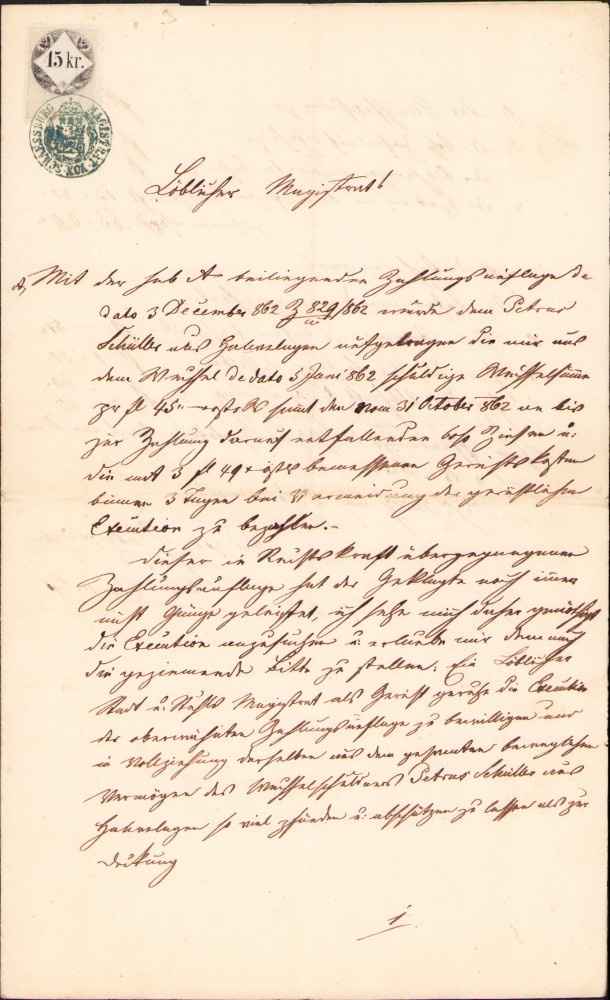 15 kr.
MAGISTRAT VON SCHAESSBURG
Löblicher Magistrat!
A, Mit der sub A beiliegenden Zahlungsauflage de
dato 3 December 862 Z 829/862 wurde dem Petrus
Schüller aus Halvelagen aufgetragen die mir aus
dem Wechsel de dato 5 Juni 862 schuldige Wechselsumme
pr fl 45 samt den vom 31 October 862 an bis
zur Zahlung darauf entfallenden Zinsen u:
die mit 3 fl 49 x bemessenen Gerichtskosten
binnen 3 Tagen bei Vermeidung der gerichtlichen
Execution zu bezahlen.–
Dieser in Rechtskraft übergegangenen
Zahlungsauflage hat der Geklagte noch immer
nicht Genüge geleistet, ich sehe mich daher genöthigt
die Execution anzusuchen u: erlaube mir demnach
die geziemende Bitte zu stellen: Ein Löblicher
Stadt u: Magistrat als Gericht geruhe die Execution
der oberwähnten Zahlungsauflage zu bewilligen und
in Vollziehung derselben aus dem gesamten beweglichen
Vermögen des Wechselschuldners Petrus Schüller aus
Halvelagen so viel pfänden u: abschätzen zu lassen als zur
Deckung
1